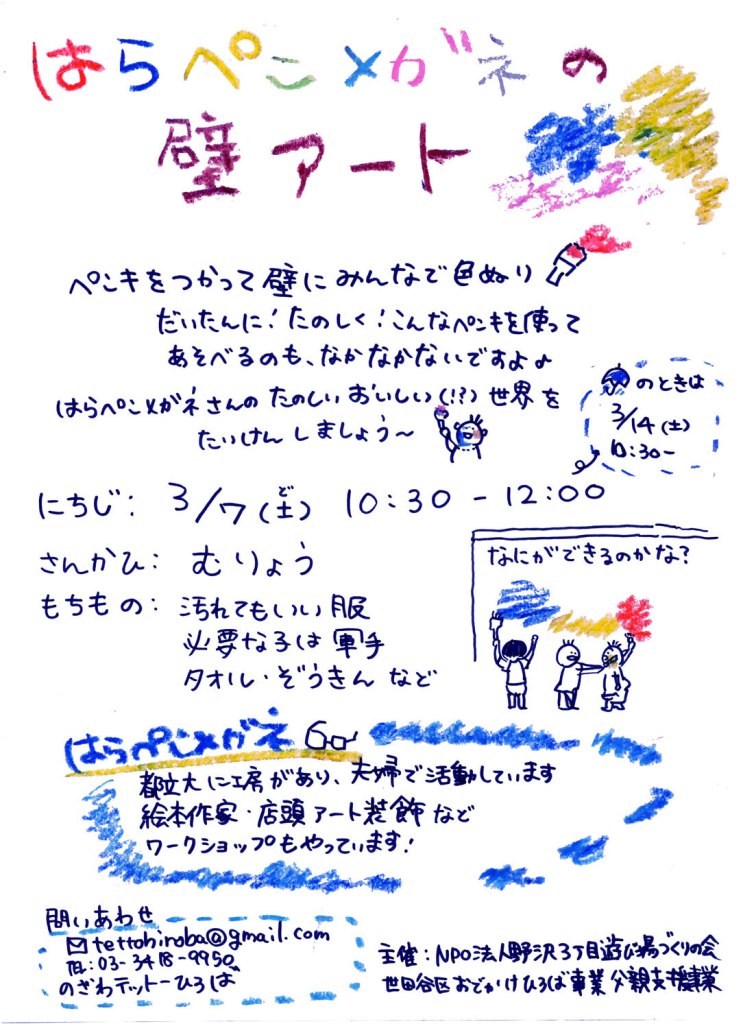 はらぺこメガネの
壁アート
ペンキをつかって壁にみんなで色ぬり
だいたんに！たのしく！こんなペンキを使って
あそべるのも、なかなかないですよ♪
はらぺこメガネさんのたのしいおいしい(!?)世界を
たいけんしましょう〜
のときは
3/14(土)
10:30-
にちじ： 3/7(土) 10:30 - 12:00
ど
さんかひ： むりょう
もちもの： 汚れてもいい服
必要な子は軍手
タオル・ぞうきんなど
なにができるのかな？
はらぺこメガネ
都立大に工房があり、夫婦で活動しています
絵本作家・店頭アート装飾など
ワークショップもやっています！
問いあわせ
tettohiroba@gmail.com
TEL:03-3418-9950
のざわテットーひろば
主催：NPO法人野沢3丁目遊び場づくりの会
世田谷区おでかけひろば事業 父親支援事業